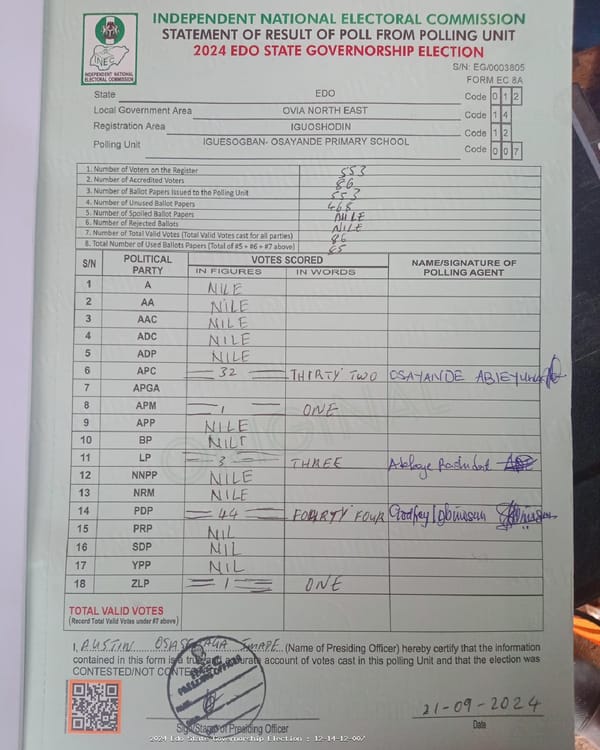 INDEPENDENT NATIONAL ELECTORAL COMMISSION
STATEMENT OF RESULT OF POLL FROM POLLING UNIT
2024 EDO STATE GOVERNORSHIP ELECTION
INEC
INDEPENDENT NATIONAL ELECTORAL COMMISSION
S/N: EG/0003805
FORM EC 8A
State EDO Code 0 1 2
Local Government Area OVIA NORTH EAST Code 1 4
Registration Area IGUOSHODIN Code 1 2
Polling Unit IGUESOGBAN- OSAYANDE PRIMARY SCHOOL Code 0 0 7
1. Number of Voters on the Register 553
2. Number of Accredited Voters 86
3. Number of Ballot Papers Issued to the Polling Unit 553
4. Number of Unused Ballot Papers 468
5. Number of Spoiled Ballot Papers NILE
6. Number of Rejected Ballots NILE
7. Number of Total Valid Votes (Total Valid Votes cast for all parties) 86
8. Total Number of Used Ballots Papers (Total of #5 + #6 + #7 above) 85
S/N POLITICAL PARTY VOTES SCORED NAME/SIGNATURE OF POLLING AGENT
IN FIGURES IN WORDS
1 A NILE
2 AA NILE
3 AAC NILE
4 ADC NILE
5 ADP NILE
6 APC 32 THIRTY TWO OSAYANDE
7 APGA
8 APM 1 ONE
9 APP NILE
10 BP NILT
11 LP 3 THREE
12 NNPP NILE
13 NRM NILE
14 PDP 44 FOURTY FOUR Godfrey
15 PRP NIL
16 SDP NIL
17 YPP NIL
18 ZLP 1 ONE
TOTAL VALID VOTES
(Record Total Valid Votes under #7 above)
I, AUSTIN (Name of Presiding Officer) hereby certify that the information
contained in this form is a true and accurate account of votes cast in this polling Unit and that the election was
CONTESTED/NOT CONTESTED
21-09-2024
Sign/Stamp of Presiding Officer Date
2024 Edo State Governorship Election : 12-14-12-007